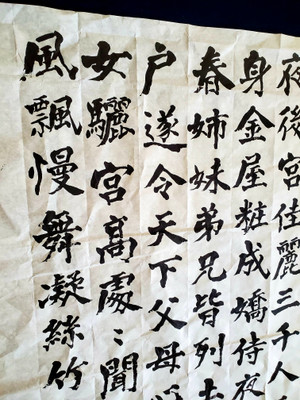 夜後宮佳麗三千人
身金屋粧成嬌侍夜
春姉妹弟兄皆列土
户遂令天下父母
女驪宮高處〻聞
風飄慢舞凝絲竹